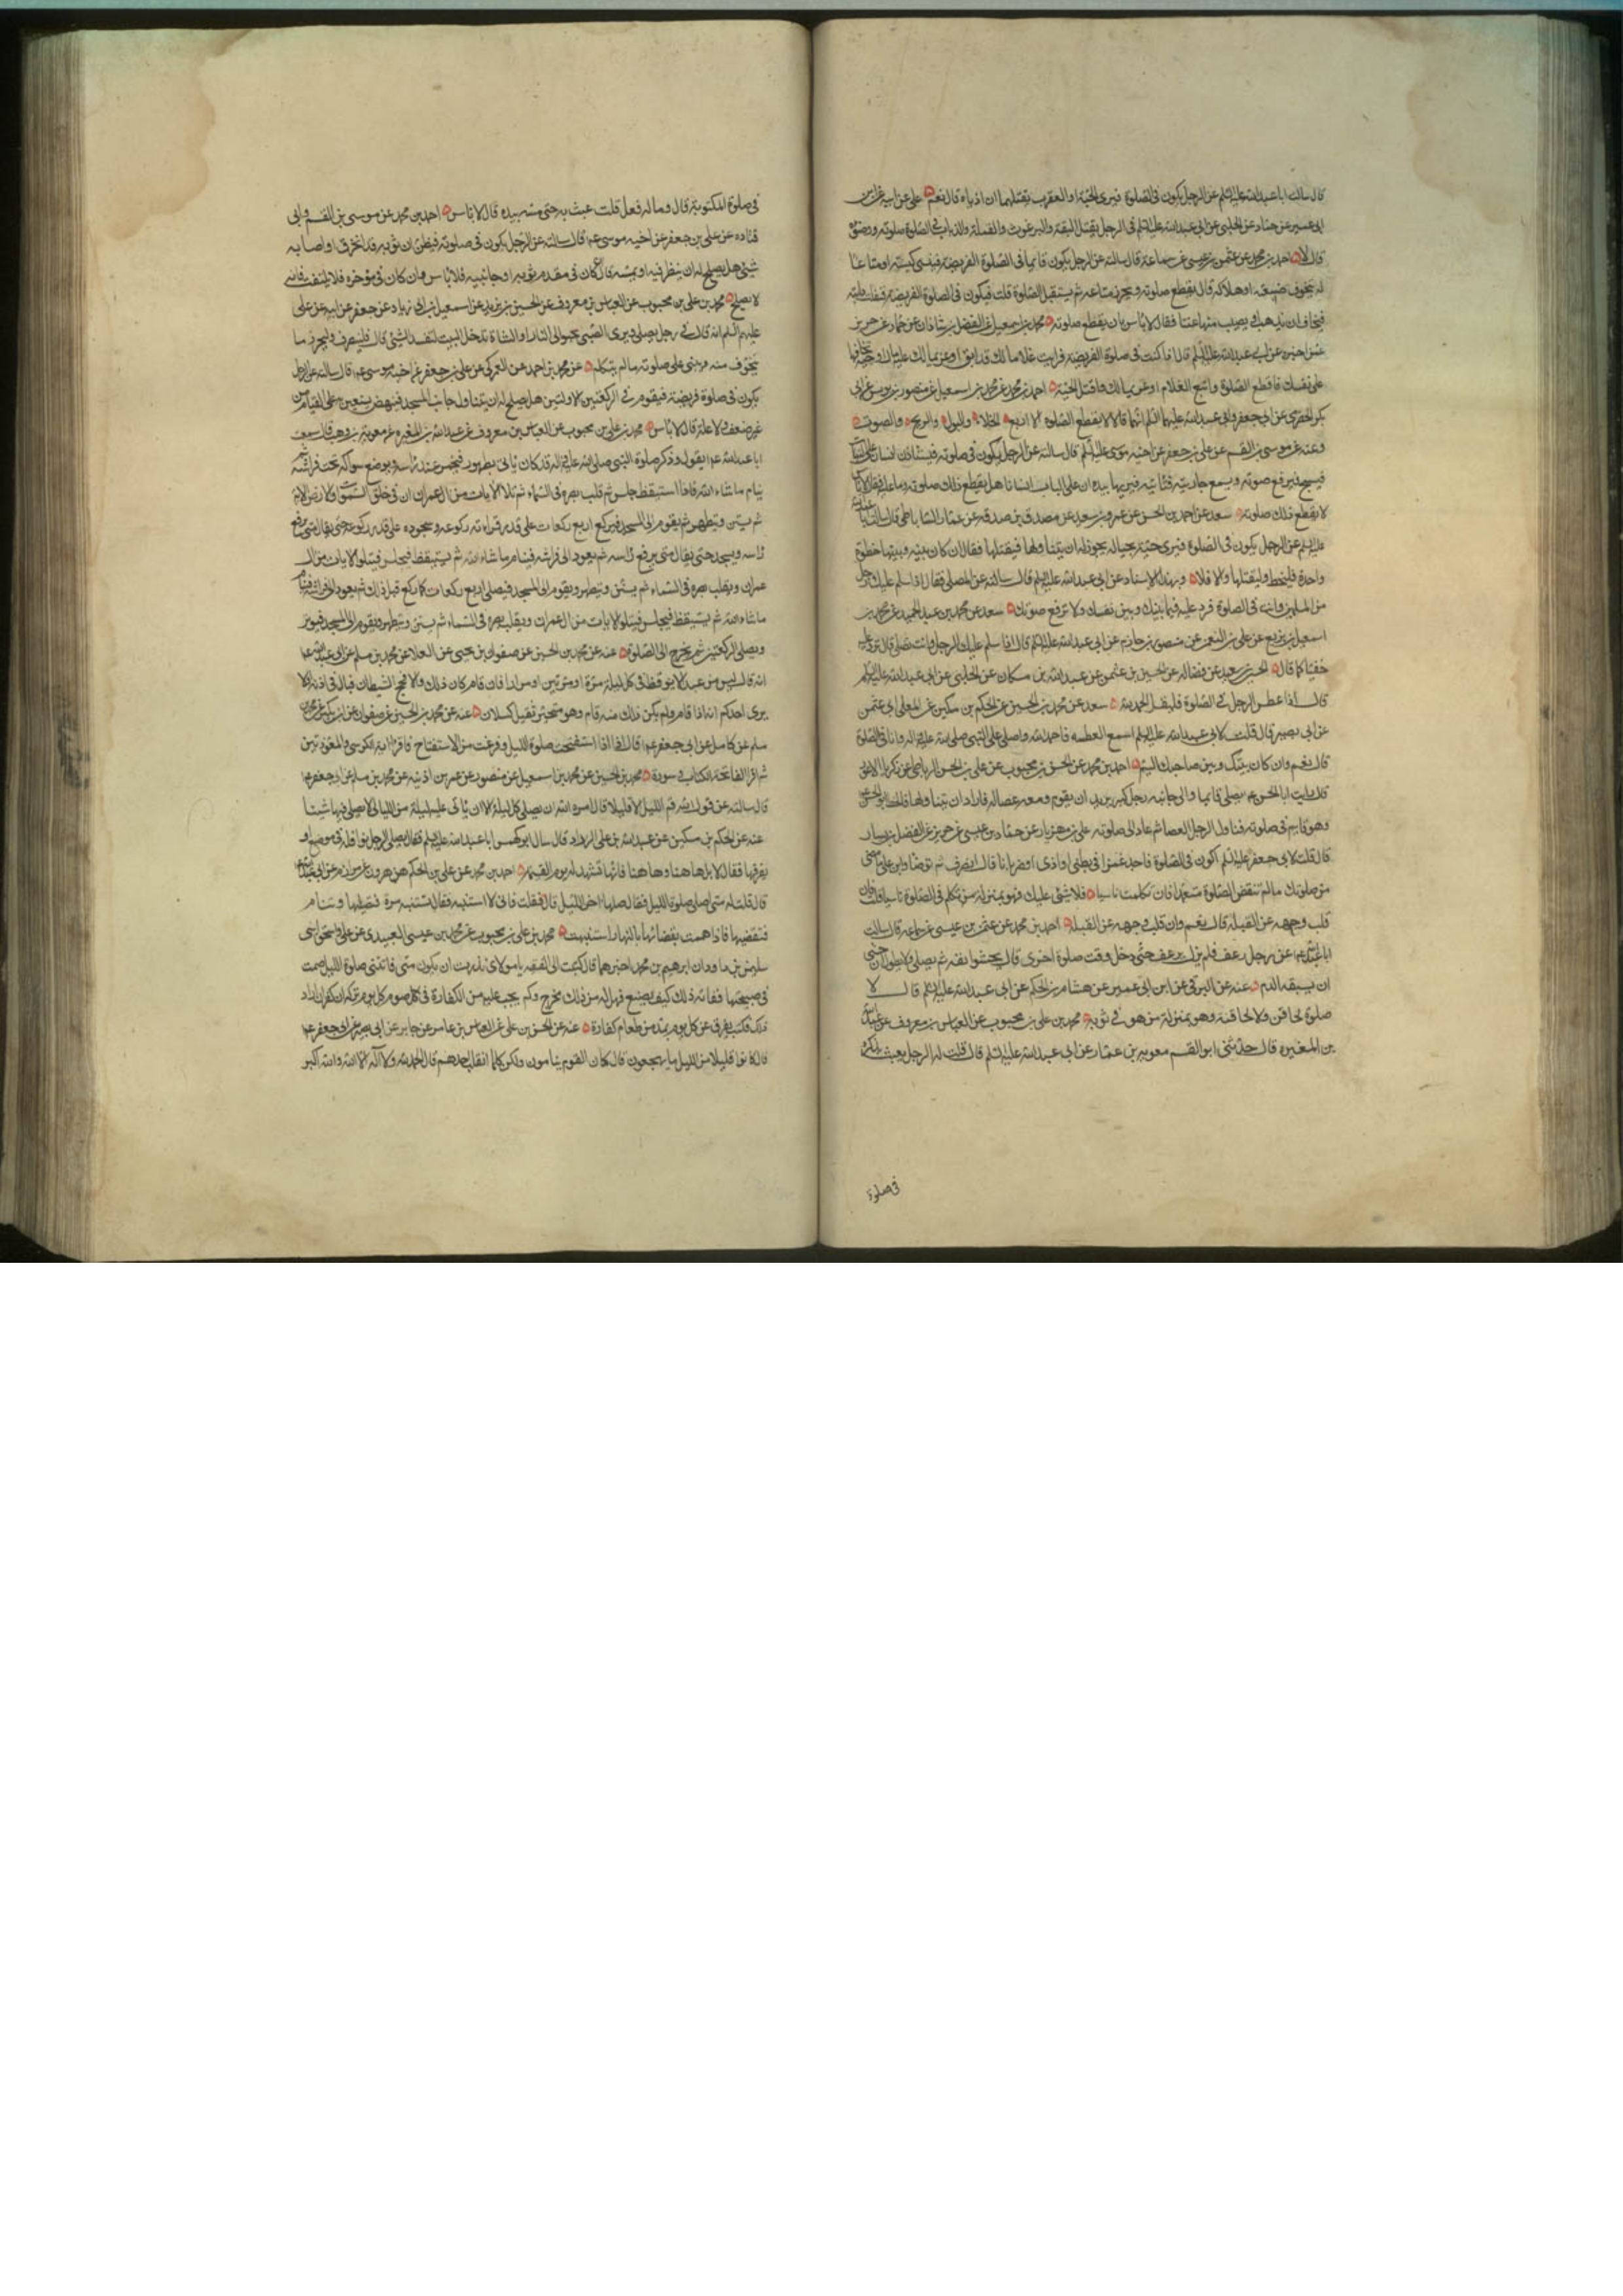 قال سالت ابا عبد الله عليه السلم عن الرجل يكون فى الصلوة فيرى الحية او العقرب يقتلهما ان اذياه قال نعم على عن ابيه عن ابن
ابى عمير عن حماد عن الحلبى عن ابى عبد الله عليه السلم فى الرجل يقتل البقة والبرغوث والقملة والذباب فى الصلوة اينقض صلوته ووضوئه
قال لا احمد بن محمد عن عثمن بن عيسى عن سماعة قال سالته عن الرجل يكون قائما فى الصلوة الفريضة فينسى كيسه او متاعا
له يتخوف ضيعته او هلاكه قال يقطع صلوته ويحرز متاعه ثم يستقبل الصلوة قلت فيكون فى الصلوة الفريضة فيفلت دابته
فيخاف ان يذهب او يصيب منها عنتا فقال لا باس بان يقطع صلوته محمد بن اسمعيل عن الفضل بن شاذان عن حماد عن حريز
عمن اخبره عن ابى عبد الله عليه السلم قال اذا كنت فى صلوة الفريضة فرايت غلاما لك قد ابق او غريما لك عليه مال او حية تخافها
على نفسك فاقطع الصلوة واتبع الغلام او غريما لك واقتل الحية احمد بن محمد عن محمد بن اسمعيل عن منصور بن يونس عن ابى
بكر الحضرمى عن ابى جعفر وابى عبد الله عليهما السلم انهما قالا لا يقطع الصلوة الا اربع الخلاء والبول والريح والصوت
وعنه عن موسى بن القسم عن على بن جعفر عن اخيه موسى عليه السلم قال سالته عن الرجل يكون فى صلوته فيستاذن انسان على الباب
فيسبح فيرفع صوته ويسمع جاريته فتاتيه فيريها بيده ان على الباب انسانا هل يقطع ذلك صلوته وما عليه فقال لا باس
لا يقطع ذلك صلوته سعد عن احمد بن الحسن عن عمرو بن سعيد عن مصدق بن صدقة عن عمار الساباطى قال سالت ابا عبد الله
عليه السلم عن الرجل يكون فى الصلوة فيرى حية بحياله يجوز له ان يتناولها فيقتلها فقال ان كان بينه وبينها خطوة
واحدة فليخط وليقتلها والا فلا وبهذا الاسناد عن ابى عبد الله عليه السلم قال سالته عن المصلى فقال اذا سلم عليك رجل
من المسلمين وانت فى الصلوة فرد عليه فيما بينك وبين نفسك ولا ترفع صوتك سعد عن محمد بن عبد الحميد عن محمد بن
اسمعيل بن بزيع عن على بن النعمن عن منصور بن حازم عن ابى عبد الله عليه السلم قال اذا سلم عليك الرجل وانت تصلى قال ترد عليه
خفيا كما قال الحسين بن سعيد عن فضاله عن الحسين بن عثمن عن عبد الله بن مسكان عن الحلبى عن ابى عبد الله عليه السلم
قال اذا عطس الرجل فى الصلوة فليقل الحمد لله سعد عن محمد بن الحسين عن الحكم بن مسكين عن المعلى ابى عثمن
عن ابى بصير قال قلت لابى عبد الله عليه السلم اسمع العطسه فاحمد الله واصلى على النبى صلى الله عليه واله وانا فى الصلوة
قال نعم وان كان بينك وبين صاحبك اليم احمد بن محمد عن الحسن بن محبوب عن على بن الحسن الرباطى عن زكريا الاعور
قال رايت ابا الحسن يصلى قائما والى جانبه رجل كبير يريد ان يقوم ومعه عصا له فاراد ان يتناولها فانحط ابو الحسن
وهو قايم فى صلوته فناول الرجل العصا ثم عاد الى صلوته على بن مهزيار عن حماد بن عيسى عن حريز عن الفضل بن يسار
قال قلت لابى جعفر عليه السلم اكون فى الصلوة فاجد غمزا فى بطنى او اذى او ضربانا قال انصرف ثم توضا وابن على ما مضى
من صلوتك ما لم تنقض الصلوة متعمدا فان تكلمت ناسيا فلا شئى عليك فهو بمنزلة من تكلم فى الصلوة ناسيا قلت فان
قلب وجهه عن القبلة قال نعم وان قلب وجهه عن القبلة احمد بن محمد عن عثمن بن عيسى عن سماعه قال سالت
ابا عبد الله عن رجل رعف فلم يزل يرعف حتى دخل وقت صلوة اخرى قال يحشوا انفه ثم يصلى ولا يطول ان خشى
ان يسبقه الدم عنه عن البرقى عن ابن ابى عمير عن هشام بن الحكم عن ابى عبد الله عليه السلم قال لا
صلوة لحاقن ولا لحاقنة وهو بمنزلة من هو فى ثوبه محمد بن على بن محبوب عن العباس بن معروف عن عبد الله
بن المغيره قال حدثنى ابو القسم معويه بن عمار عن ابى عبد الله عليه السلم قال قلت له الرجل يعبث بذكره
فى صلوة
فى صلوة المكتوبة قال وما له فعل قلت عبث به حتى مسه بيده قال لا باس احمد بن محمد عن موسى بن القسم وابى
قتاده عن على بن جعفر عن اخيه موسى قال سالته عن الرجل يكون فى صلوته فيظن ان ثوبه قد انخرق او اصابه
شئى هل يصلح له ان ينظر فيه او يمسه قال ان كان فى مقدم ثوبه او جانبيه فلا باس وان كان فى مؤخره فلا يلتفت فانه
لا يصلح محمد بن على بن محبوب عن العباس بن معروف عن الحسين بن يزيد عن اسمعيل بن ابى زياد عن جعفر عن ابيه عن على
عليهم السلم انه قال فى رجل يصلى ويرى الصبى يحبو الى النار او الشاة تدخل البيت لتفسد الشئى قال فلينصرف وليحرز ما
يتخوف منه ويبنى على صلوته ما لم يتكلم عن محمد بن احمد عن العمركى عن على بن جعفر عن اخيه موسى قال سالته عن الرجل
يكون فى صلوة فريضة فيقوم فى الركعتين الاولتين هل يصلح له ان يتناول جانب المسجد فينهض يستعين به على القيام من
غير ضعف ولا علة قال لا باس محمد بن على بن محبوب عن العباس بن معروف عن عبد الله بن المغيره عن معوية بن وهب قال سمعت
ابا عبد الله يقول وذكر صلوة النبى صلى الله عليه واله قد كان ياتى بطهور فيخمر عند راسه ويوضع سواكه تحت فراشه ثم
ينام ما شاء الله فاذا استيقظ جلس ثم قلب بصره فى السماء ثم تلا الايات من ال عمران ان فى خلق السموات والارض الاية
ثم يستن ويتطهر ثم يقوم الى المسجد فيركع اربع ركعات على قدر قراءته ركوعه وسجوده على قدر ركوعه حتى يقال متى يرفع
راسه ويسجد حتى يقال متى يرفع راسه ثم يعود الى فراشه فينام ما شاء الله ثم يستيقظ فيجلس فيتلو الايات من ال
عمران ويقلب بصره فى السماء ثم يستن ويتطهر ويقوم الى المسجد فيصلى اربع ركعات كما ركع قبل ذلك ثم يعود الى فراشه فينام
ما شاء الله ثم يستيقظ فيجلس فيتلو الايات من ال عمران ويقلب بصره فى السماء ثم يستن ويتطهر ويقوم الى المسجد فيوتر
ويصلى الركعتين ثم يخرج الى الصلوة عنه عن محمد بن الحسين عن صفوان بن يحيى عن العلا عن محمد بن مسلم عن ابى عبد الله
انه قال ليس من عبد الا يوقظ فى كل ليلة مرة او مرتين او مرارا فان قام كان ذلك والا فحج الشيطان فبال فى اذنه الا
يرى احدكم انه اذا قام ولم يكن ذلك منه قام وهو متخثر ثقيل كسلان عنه عن محمد بن الحسين عن صفوان عن ابن بكير عن محمد بن
مسلم عن كامل عن ابى جعفر قال اذا استفتحت صلوة الليل وفرغت من الاستفتاح فاقرا اية الكرسى والمعوذتين
ثم اقرا الفاتحة الكتاب وسورة محمد بن الحسين عن محمد بن اسمعيل عن منصور عن عمر بن اذينه عن محمد بن مسلم عن ابى جعفر
قال سالته عن قول الله قم الليل الا قليلا قال امره الله ان يصلى كل ليلة الا ان ياتى عليه ليلة من الليالى لا يصلى فيها شيئا
عنه عن الحكم بن مسكين عن عبد الله بن على الزراد قال سال ابو كهمس ابا عبد الله عليه السلم فقال يصلى الرجل نوافله فى موضع او
يفرقها فقال لا بل هاهنا وهاهنا فانها تشهد له يوم القيمة احمد بن محمد عن على بن الحكم عن هرون عن مرازم عن ابى عبد الله
قال قلت له متى اصلى صلوة الليل فقال صلها اخر الليل قال فقلت فانى لا استنبه فقال تستنبه مرة فتصليها وتنام
فتقضيها فاذا هممت بقضائها بالنهار استنبهت محمد بن على بن محبوب عن محمد بن عيسى العبيدى عن على واسحق ابنى
سليمن بن داود ان ابرهيم بن محمد اخبرهما قال كتبت الى الفقيه يا مولاى نذرت ان يكون متى فاتتنى صلوة الليل صمت
فى صبيحتها ففاته ذلك كيف يصنع فهل له من ذلك مخرج وكم يجب عليه من الكفارة فى كل صوم كل يوم تركه ان كفر ان اراد
ذلك فكتب يفرق عن كل يوم بمد من طعام كفارة عنه عن الحسن بن على عن العباس بن عامر عن جابر عن ابى بصير عن ابى جعفر
قال كانوا قليلا من الليل ما يهجعون قال كان القوم ينامون ولكن كلما انقلب احدهم قال الحمد لله ولا اله الا الله والله اكبر